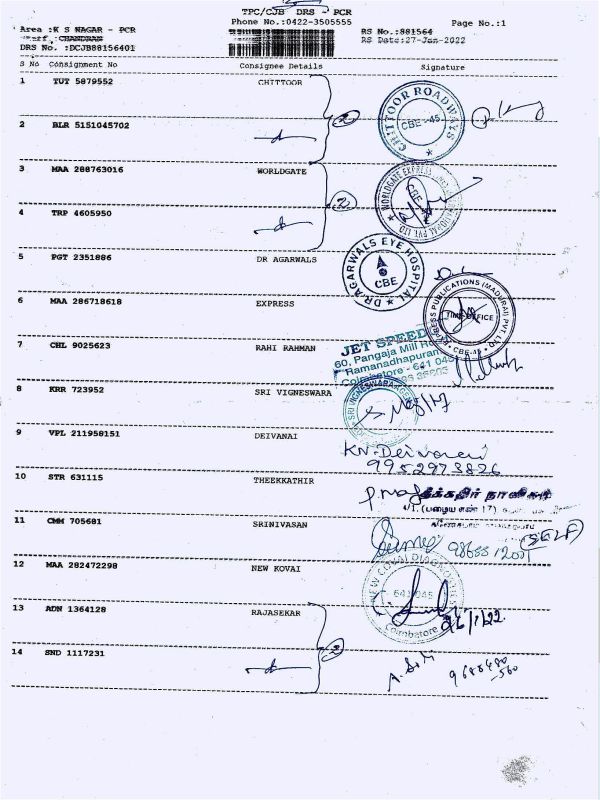 TPC/CJB DRS - PCR
Phone No.:0422-3505555
Page No.:1
Area :K S NAGAR - PCR
RS No.:881564
CHANDRAN
RS Date:27-Jan-2022
DRS No. :DCJB88156401
S No Consignment No Consignee Details Signature
1 TUT 5879552 CHITTOOR
CHITTOOR ROADWAYS
CBE-45
2 BLR 5151045702
2
3 MAA 288763016 WORLDGATE
WORLDGATE EXPRESS PVT LTD
CBE
4 TRP 4605950
2
5 PGT 2351886 DR AGARWALS
DR.AGARWALS EYE HOSPITAL
CBE
6 MAA 286718618 EXPRESS
EXPRESS PUBLICATIONS (MADURAI) PVT. LTD.
TIME OFFICE
CBE-45
7 CHL 9025623 RAHI RAHMAN
JET SPEED
60, Pangaja Mill Road
Ramanadhapuram
Coimbatore - 641 045
8 KRR 723952 SRI VIGNESWARA
SRI VIGNESWARA
9 VPL 211958151 DEIVANAI
KN. Deivanai
9952973826
10 STR 631115 THEEKKATHIR
தீக்கதிர்
(பழைய எண் 17)
11 CMM 705681 SRINIVASAN
(SELF)
12 MAA 282472298 NEW KOVAI
NEW KOVAI DIAGNOSTIC
641 045
Coimbatore
13 ADN 1364128 RAJASEKAR
26/1/22
14 SND 1117231
2
9688480
560